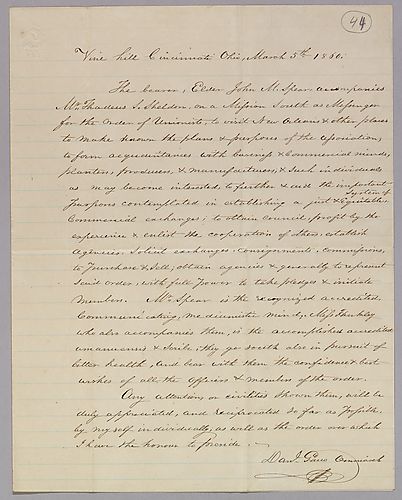 44
Vine hill Cincinnati Ohio, March 5th 1860.
The bearer, Elder John M. Spear accompanies
Mr. Thaddeus S. Sheldon, on a Mission South as Messenger
for the Order of Unionists, to visit New Orleans & other places
to make known the plans & purposes of the Association,
to form acquaintances with business & Commercial minds,
planters, producers, & manufacturers, & such individuals
as may become interested to further & aid the important
purposes contemplated in establishing a just & Equitable System of
Commercial exchanges; to obtain Council, profit by the
experience & enlist the cooperation of others, establish
Agencies. Solicit exchanges. consignments. commissions,
to Purchase & Sell, obtain agencies & generally to represent
Said order, with full power to take pledges & initiate
Members. Mr. Spear is the recognized accredited
Communicating, mediumistic mind, Miss
who also accompanies them, is the accomplished accredited
amanuensis & Scribe, they go south also in pursuit of
better health, and bear with them the confidence & best
wishes of all the officers & members of the order.
Any attentions or civilities shown them, will be
duly appreciated, and reciprocated so far as possible,
by myself individually, as well as the order over which
I have the honour to preside.
Danl.